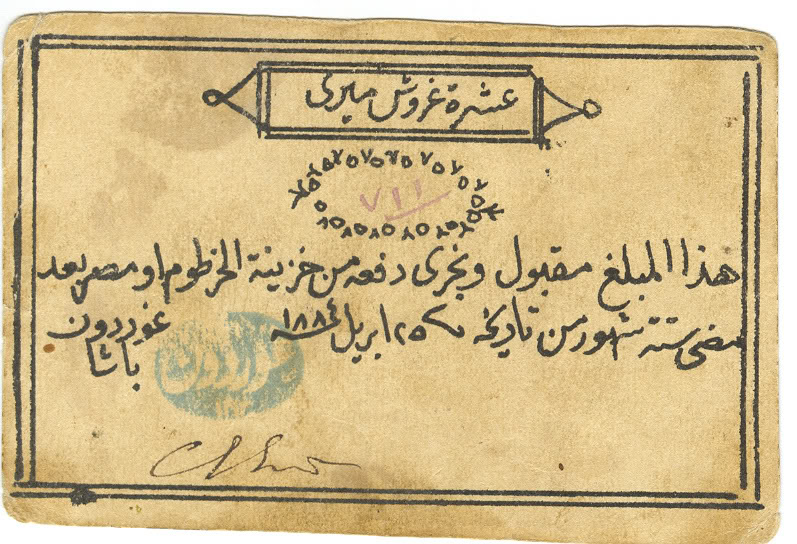 عشرة غروش ميرى
٧١١
هذا المبلغ مقبول وتجرى دفعه من خزينة الخرطوم او مصر بعد
مضى ستة شهور من تاريخه ٢٥ ابريل ١٨٨٤ سنه
غوردون
باشا